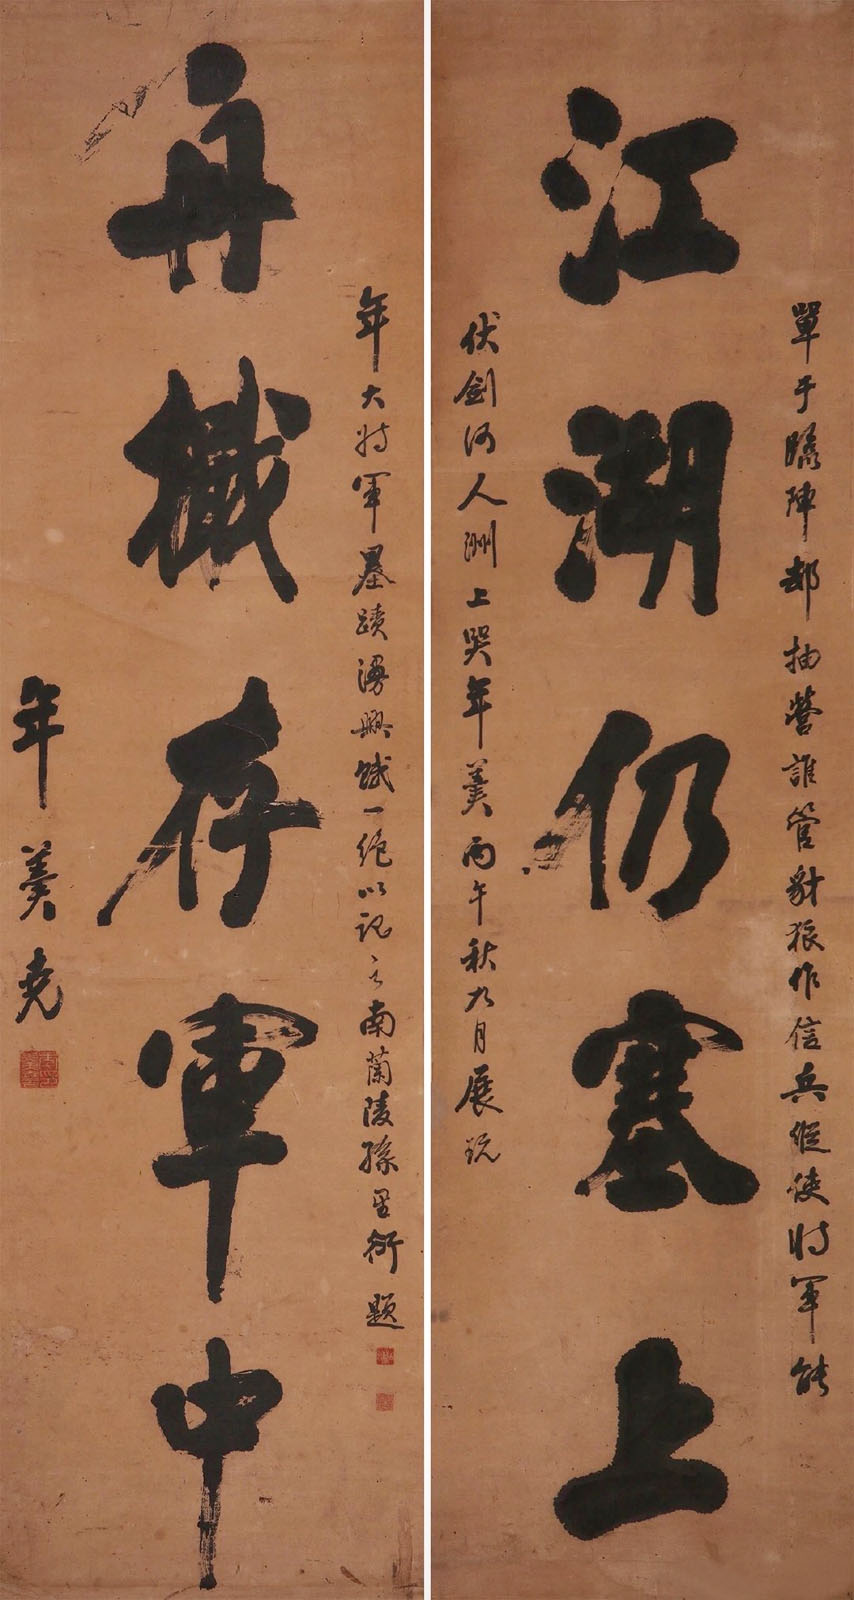 單于臨陣却抽營誰管豺狼作信兵縱使將軍能
江湖仍塞上
伏劍何人洲上哭年羹丙午秋九月展玩
年大將軍墨蹟湧興賦一絕以記之南蘭陵孫星衍題
舟檝存軍中
年羹堯